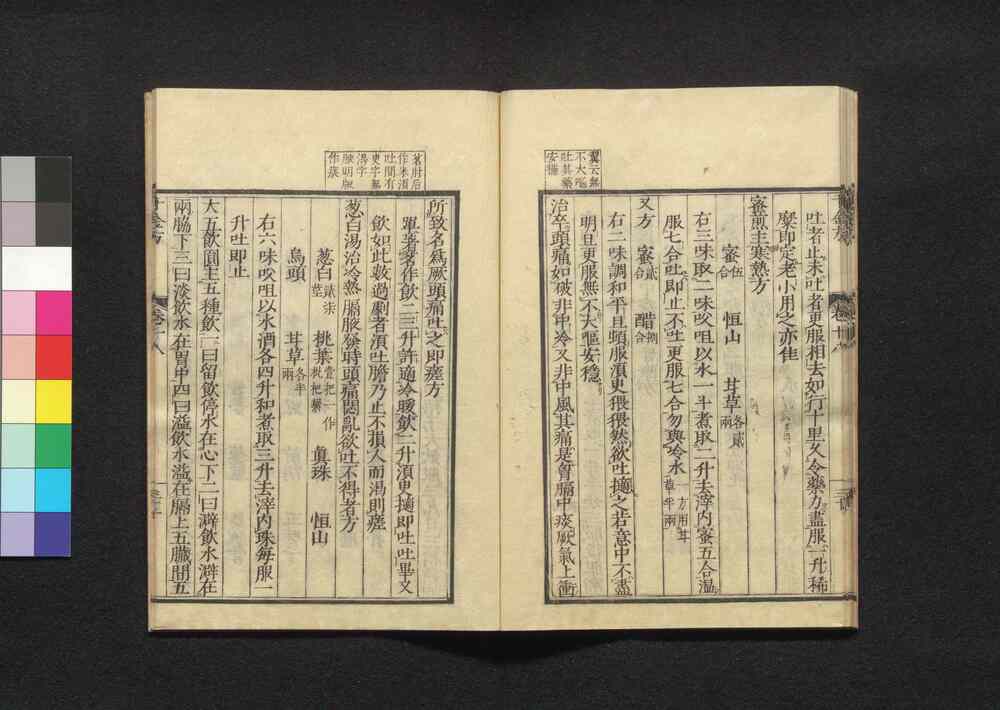 翼云無
不大嘔
吐其藥
安穩
吐者止未吐者更服相去如行十里久令藥力盡服一升稀
糜即定老小用之亦佳
蜜煎主寒熱方
蜜伍合 恒山 甘草各貳兩
右三味取二味㕮咀以水一斗煮取二升去滓内蜜五合溫
服七合吐即止不吐更服七合勿與冷水一方用甘草半兩
又方 蜜貳合 醋捌合
右二味調和平旦頓服須更猥猥然欲吐擿之若意中不盡
明旦更服無不大嘔安穩
治卒頭痛如破非中冷又非中風其痛是胷膈中痰厥氣上衝
茗肘后
作米須
吐間有
更字無
湯字
陳明
作蔟
所致名爲厥頭痛吐之即瘥方
單煮茗作飲二三升許適冷暖飲二升須更擿即吐吐畢又
飲如此數過劇者須吐膽乃止不損人而渴則瘥
葱白湯治冷熱膈痰發時頭痛悶亂欲吐不得者方
葱白貳柒莖 桃葉壹把一作枇杷葉 真珠 恒山
烏頭 甘草各半兩
右六味㕮咀以水酒各四升和煮取三升去滓内珠每服一
升吐即止
大五飲圓主五種飲一曰留飲停水在心下二曰澼飲水澼在
兩脇下三曰淡飲水在胃中四曰溢飲水溢在膈上五臟間五